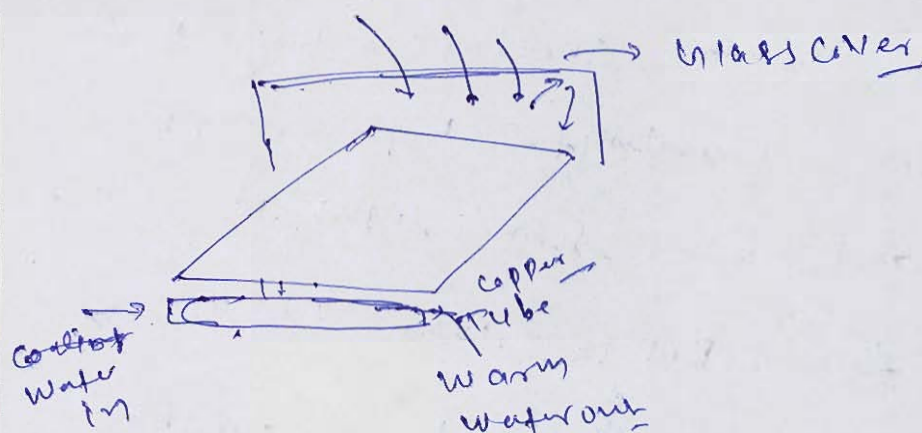 Glass Cover
Copper
Tube
Water
in
Warm
Water out